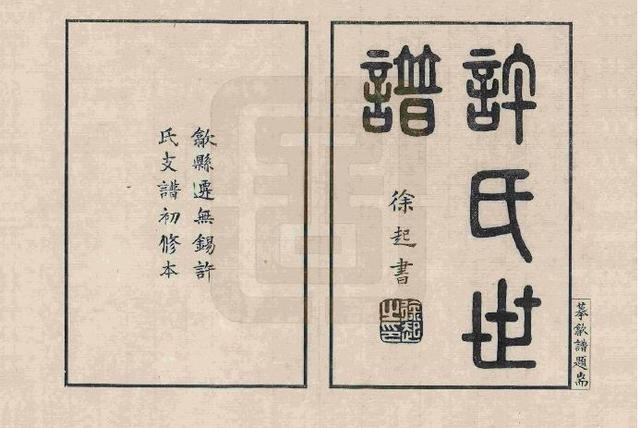 摹歙譜題耑
許氏世
譜
徐起書
徐起
之印
歙縣遷無錫許
氏支譜初修本